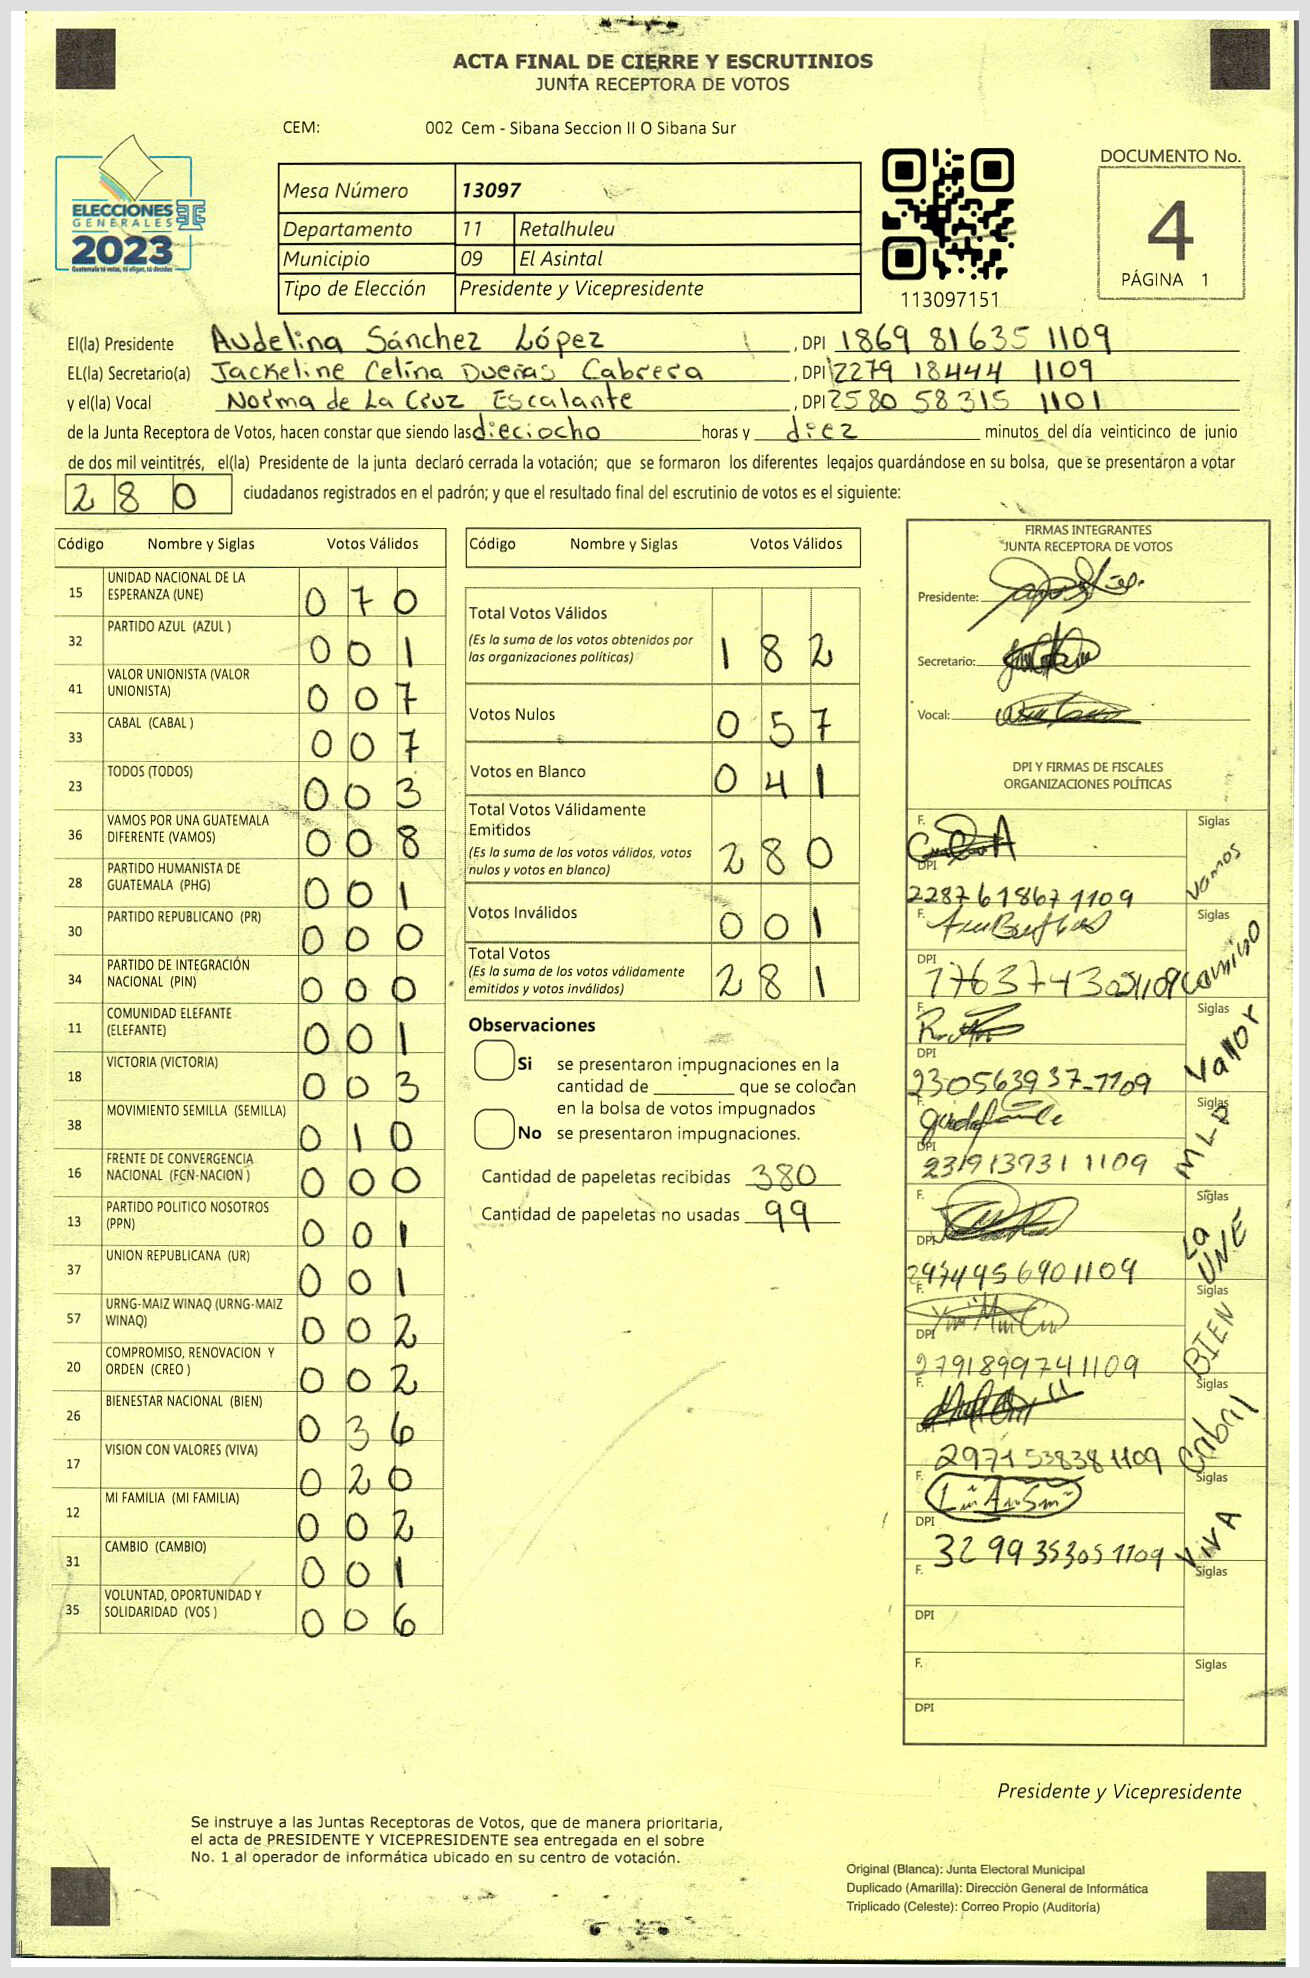 ACTA FINAL DE CIERRE Y ESCRUTINIOS
JUNTA RECEPTORA DE VOTOS
CEM: 002 Cem - Sibana Seccion II O Sibana Sur
ELECCIONES
GENERALES
2023
Guatemala tú votas, tú eliges, tú decides
Mesa Número 13097
Departamento 11 Retalhuleu
Municipio 09 El Asintal
Tipo de Elección Presidente y Vicepresidente
113097151
DOCUMENTO No.
4
PÁGINA 1
El(la) Presidente Audelina Sánchez López , DPI 1869 81635 1109
EL(la) Secretario(a) Jackeline Celina Dueñas Cabrera , DPI 2279 18444 1109
y el(la) Vocal Norma de La Cruz Escalante , DPI 2580 58315 1101
de la Junta Receptora de Votos, hacen constar que siendo las dieciocho horas y diez minutos del día veinticinco de junio
de dos mil veintitrés, el(la) Presidente de la junta declaró cerrada la votación; que se formaron los diferentes legajos guardándose en su bolsa, que se presentaron a votar
280 ciudadanos registrados en el padrón; y que el resultado final del escrutinio de votos es el siguiente:
Código Nombre y Siglas Votos Válidos
15 UNIDAD NACIONAL DE LA
ESPERANZA (UNE) 070
32 PARTIDO AZUL (AZUL ) 001
41 VALOR UNIONISTA (VALOR
UNIONISTA) 007
33 CABAL (CABAL ) 007
23 TODOS (TODOS) 003
36 VAMOS POR UNA GUATEMALA
DIFERENTE (VAMOS) 008
28 PARTIDO HUMANISTA DE
GUATEMALA (PHG) 001
30 PARTIDO REPUBLICANO (PR) 000
34 PARTIDO DE INTEGRACIÓN
NACIONAL (PIN) 000
11 COMUNIDAD ELEFANTE
(ELEFANTE) 001
18 VICTORIA (VICTORIA) 003
38 MOVIMIENTO SEMILLA (SEMILLA) 010
16 FRENTE DE CONVERGENCIA
NACIONAL (FCN-NACION ) 000
13 PARTIDO POLITICO NOSOTROS
(PPN) 001
37 UNION REPUBLICANA (UR) 001
57 URNG-MAIZ WINAQ (URNG-MAIZ
WINAQ) 002
20 COMPROMISO, RENOVACION Y
ORDEN (CREO ) 002
26 BIENESTAR NACIONAL (BIEN) 036
17 VISION CON VALORES (VIVA) 020
12 MI FAMILIA (MI FAMILIA) 002
31 CAMBIO (CAMBIO) 001
35 VOLUNTAD, OPORTUNIDAD Y
SOLIDARIDAD (VOS ) 006
Código Nombre y Siglas Votos Válidos
Total Votos Válidos
(Es la suma de los votos obtenidos por
las organizaciones políticas) 182
Votos Nulos 057
Votos en Blanco 041
Total Votos Válidamente
Emitidos
(Es la suma de los votos válidos, votos
nulos y votos en blanco) 280
Votos Inválidos 001
Total Votos
(Es la suma de los votos válidamente
emitidos y votos inválidos) 281
Observaciones
Si se presentaron impugnaciones en la
cantidad de ________ que se colocan
en la bolsa de votos impugnados
No se presentaron impugnaciones.
Cantidad de papeletas recibidas 380
Cantidad de papeletas no usadas 99
FIRMAS INTEGRANTES
JUNTA RECEPTORA DE VOTOS
Presidente:
Secretario:
Vocal:
DPI Y FIRMAS DE FISCALES
ORGANIZACIONES POLÍTICAS
F. Siglas
DPI Vamos
2287618671109
F. Siglas
DPI
Siglas
F. Vallor
DPI
230563937-1109
F. Siglas
DPI MLP
2319137311109
F. Siglas
DPI La UNE
2974956901109
F. Siglas
DPI BIEN
2791899741109
F. Siglas
DPI
2971538381109
F. Siglas
DPI VIVA
3299353051109
F. Siglas
DPI
F. Siglas
DPI
Presidente y Vicepresidente
Se instruye a las Juntas Receptoras de Votos, que de manera prioritaria,
el acta de PRESIDENTE Y VICEPRESIDENTE sea entregada en el sobre
No. 1 al operador de informática ubicado en su centro de votación.
Original (Blanca): Junta Electoral Municipal
Duplicado (Amarilla): Dirección General de Informática
Triplicado (Celeste): Correo Propio (Auditoría)